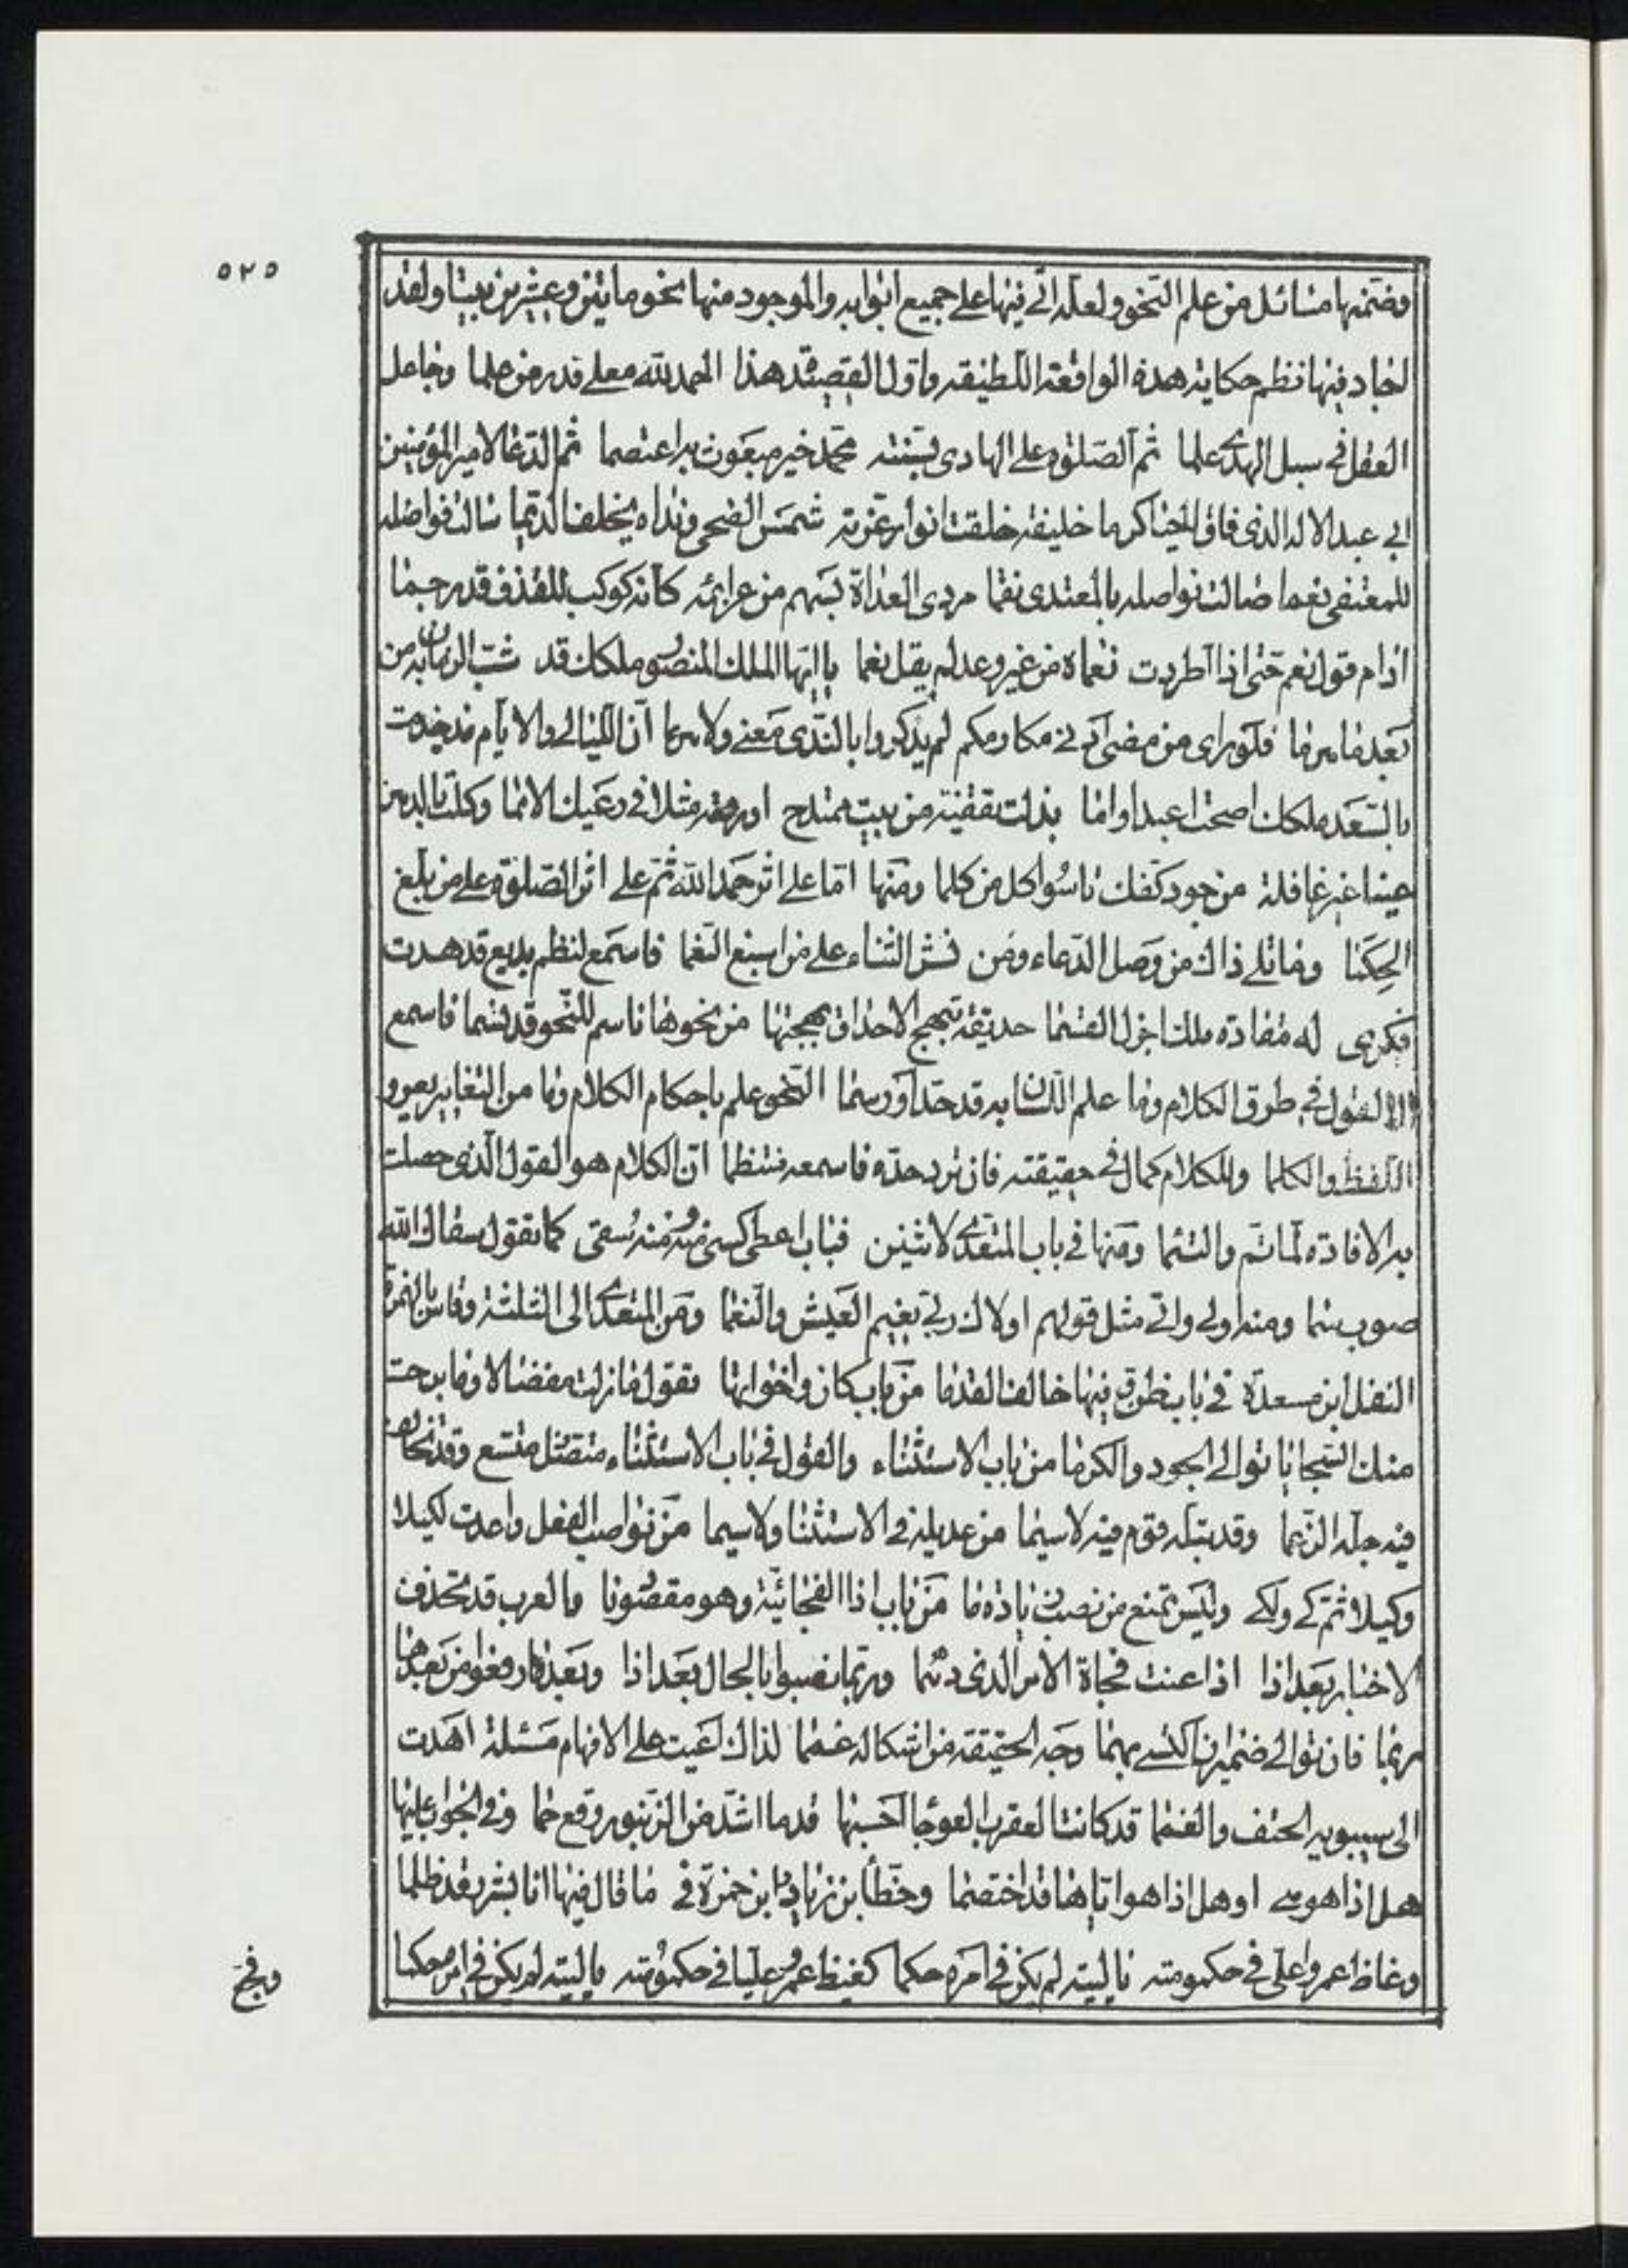 ٥٢٥
وضمنها مسائل من علم النحو ولعله اتى فيها على جميع ابوابه والموجود منها نحو مايتين وعشرين بيتا ولقد
اجاد فيها نظم حكاية هذه الواقعة اللطيفة واول القصيدة هذا الحمد لله معلى قدر من علما وجاعل
العقل فى سبل الهدى علما ثم الصلوة على الهادى بسنته محمد خير مبعوث به اعتصما ثم الدعا لامير المؤمنين
ابى عبد الاله الذى فاق الحيا كرما خليفة خلقت انوار غرته شمس الضحى ونداه يخلف الديما سالت فواضله
للمعتفى نعما صالت نواصله بالمعتدى نقما مردى العداة بسهم من عزايمه كانه كوكب للقذف قد رجما
ادام قول نعم حتى اذا اطردت نعماه من غير وعد لم يقل نعما يا ايها الملك المنصور ملكك قد شب الزمان به من
بعد ما هرما فلو راى من مضى ادنى مكارمكم لم يذكروا بالندى معنى ولا هرما ان الليالى والايام مذ خدمت
بالسعد ملكك اضحت اعبدا واما
عينا غير غافلة من جود كفك تاسوا كل من كلما ومنها اما على اثر حمد الله ثم على اثر الصلوة على من بلغ
الحكما وما تلى ذاك من وصل الدعاء ومن نشر الثناء على من اسبغ النعما فاسمع لنظم بديع قد هدت
فكرى له مفادة ملك اجزل القسما حديقة تبهج الاحداق بهجتها من نحوها ناسم للنحو قد نسما فاسمع
الى القول فى طرق الكلام وما علم اللسان به قد حد او رسما النحو علم باحكام الكلام وما من التغايير يعرو
اللفظ والكلما وللكلام كمال فى حقيقته فان ترد حده فاسمعه منتظما ان الكلام هو القول الذى حصلت
به الافادة لما تم والتئما ومنها فى باب المتعدى لاثنين فباب اعطى كسى منه ومنه سقى كما تقول سقاك الله
صوب سما ومنه اولى واتى مثل قولهم اولاك ربى نعيم العيش والنعما ومن المتعدى الى الثلثة وقاس بالهمزة
النقل ابن مسعدة فى باب ظن وفيها خالف القدما من باب كان واخواتها تقول ما زلت مفضالا وما برحت
منك السجايا توالى الجود والكرما من باب الاستثناء والقول فى باب الاستثناء متصل متسع وقد يخالف
فيه جلة الزعما وقد يتله قوم فيه لاسيما من عديله فى الاستثنا ولاسيما من نواصب الفعل واعددت لكيلا
وكيلا ثم كى ولكى وليس تمنع من نصب زيادة ما من باب اذا الفجائية وهو مقصودنا والعرب قد تحذف
الاخبار بعد اذا اذا عنت فجاة الامر الذى دهما وربما نصبوا بالحال بعد اذا وبعد ما رفعوا من بعدها
ربما فان توالى ضميران اكتسى بهما وجه الحقيقة من اشكاله غمما لذاك اعيت على الافهام مسئلة اهدت
الى سيبويه الحتف والغمما قد كانت العقرب العوجا احسبها قدما اشد من الزنبور وقع حما وفى الجواب عليها
هل اذا هو هى او هل اذا هو اياها قد اختصما وخطأ بن زياد وابن حمزة فى ما قال فيها ابا بشر وقد ظلما
وغاظ عمروا على فى حكومته يا ليته لم يكن فى امره حكما كغيظ عمرو عليا فى حكومته يا ليته لم يكن فى امر حكما
وفجع